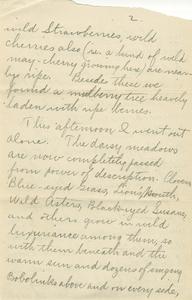 2
wild Strawberries, wild
cherries also (i.e. a kind of wild
may-cherry growing here) are near-
ly ripe. Beside these we
found a mulberry tree heavily
laden with ripe berries.
This afternoon I went out
alone. The daisy meadows
are now completely passed
from power of description. Clover,
Blue-eyed Grass,
Wild Asters, Black-eyed Susans,
and others grow in wild
luxuriance among them, so
with them beneath and the
warm sun and dozens of
Bobolinks above and on every side,